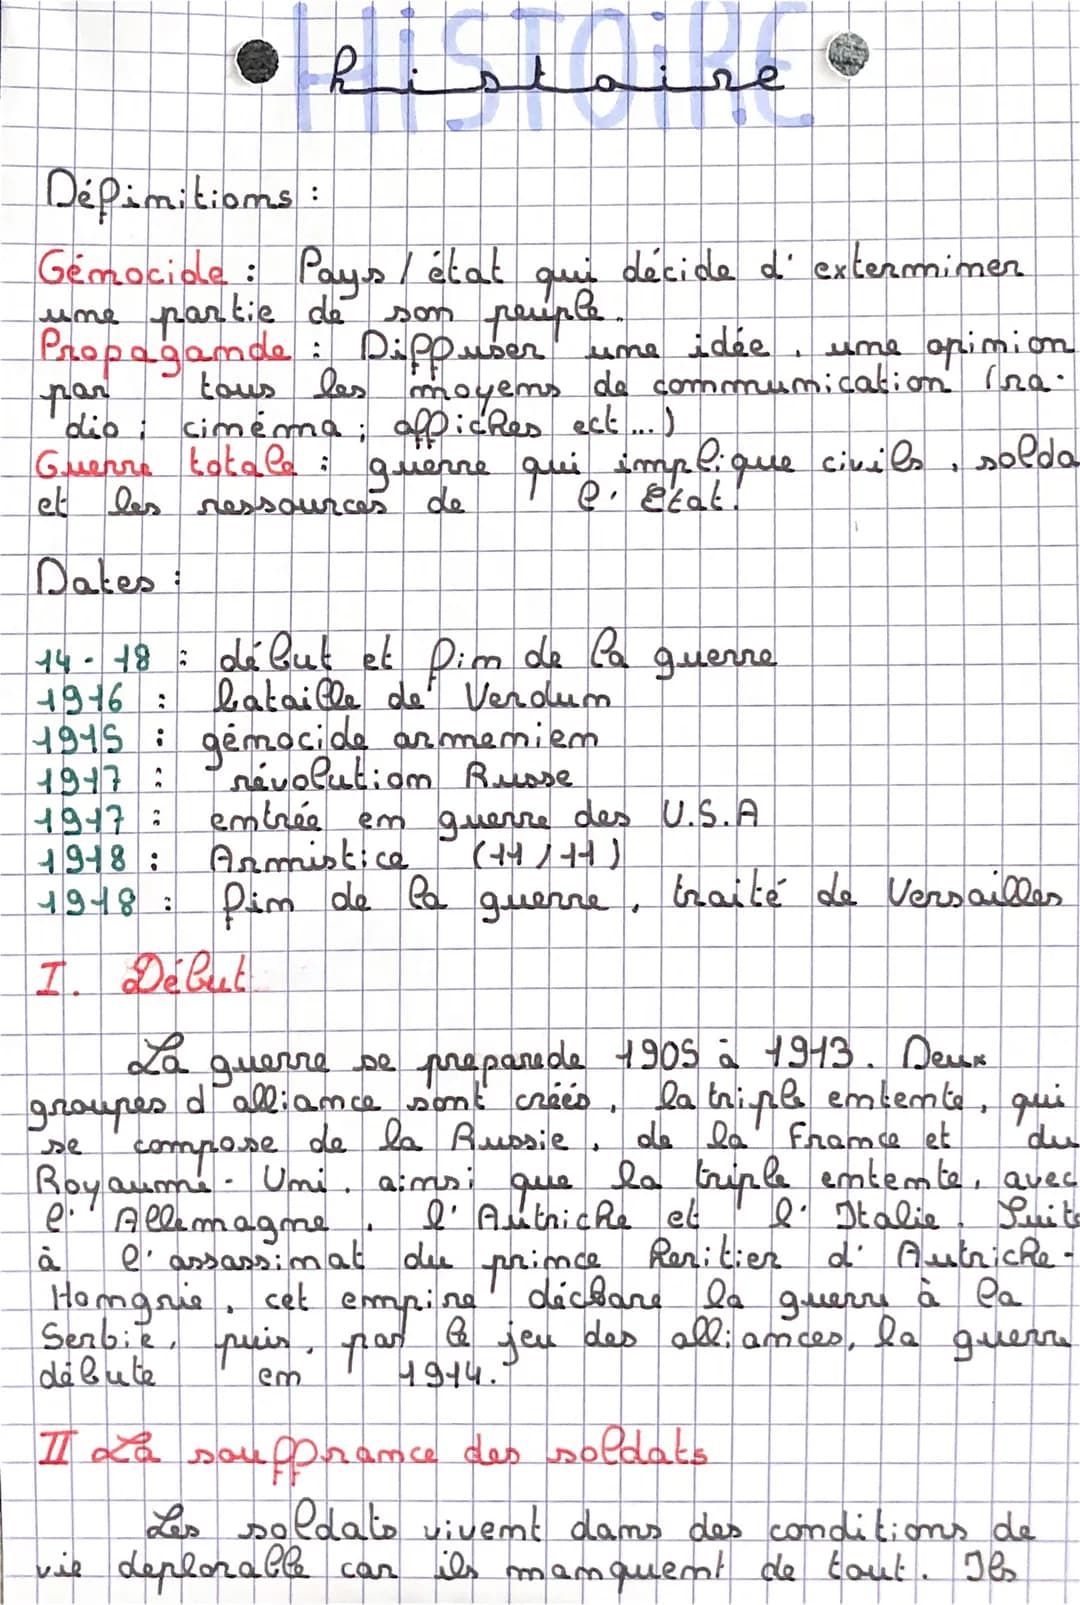 HISTOIRE
histoire
Définitions :
Génocide : Pays / état qui décide d' exterminer
une partie de son peuple.
Propagande : Diffuser une idée, une opinion
par tous les moyens de communication (ra-
dio ; cinéma ; affiches ect ...)
Guerre totale : guerre qui implique civils, solda
et les ressources de l' état.
Dates :
14 - 18 : début et fin de la guerre
1916 : bataille de Verdun
1915 : génocide armenien
1917 : révolution Russe
1917 : entrée en guerre des U.S.A
1918 : Armistice (11/11)
1918 : fin de la guerre, traité de Versailles
I. Début
La guerre se preparede 1905 à 1913. Deux
groupes d'alliance sont créés, la triple entente, qui
se compose de la Russie, de la France et du
Royaume-Uni, ainsi que la triple entente, avec
l' Allemagne, l'Autriche et l' Italie. Suite
à l'assassinat du prince heritier d' Autriche-
Hongrie, cet empire déclare la guerre à la
Serbie, puis, par le jeu des alliances, la guerre
débute en 1914.
II La souffrance des soldats
Les soldats vivent dans des conditions de
vie deplorable car ils manquent de tout. Ils